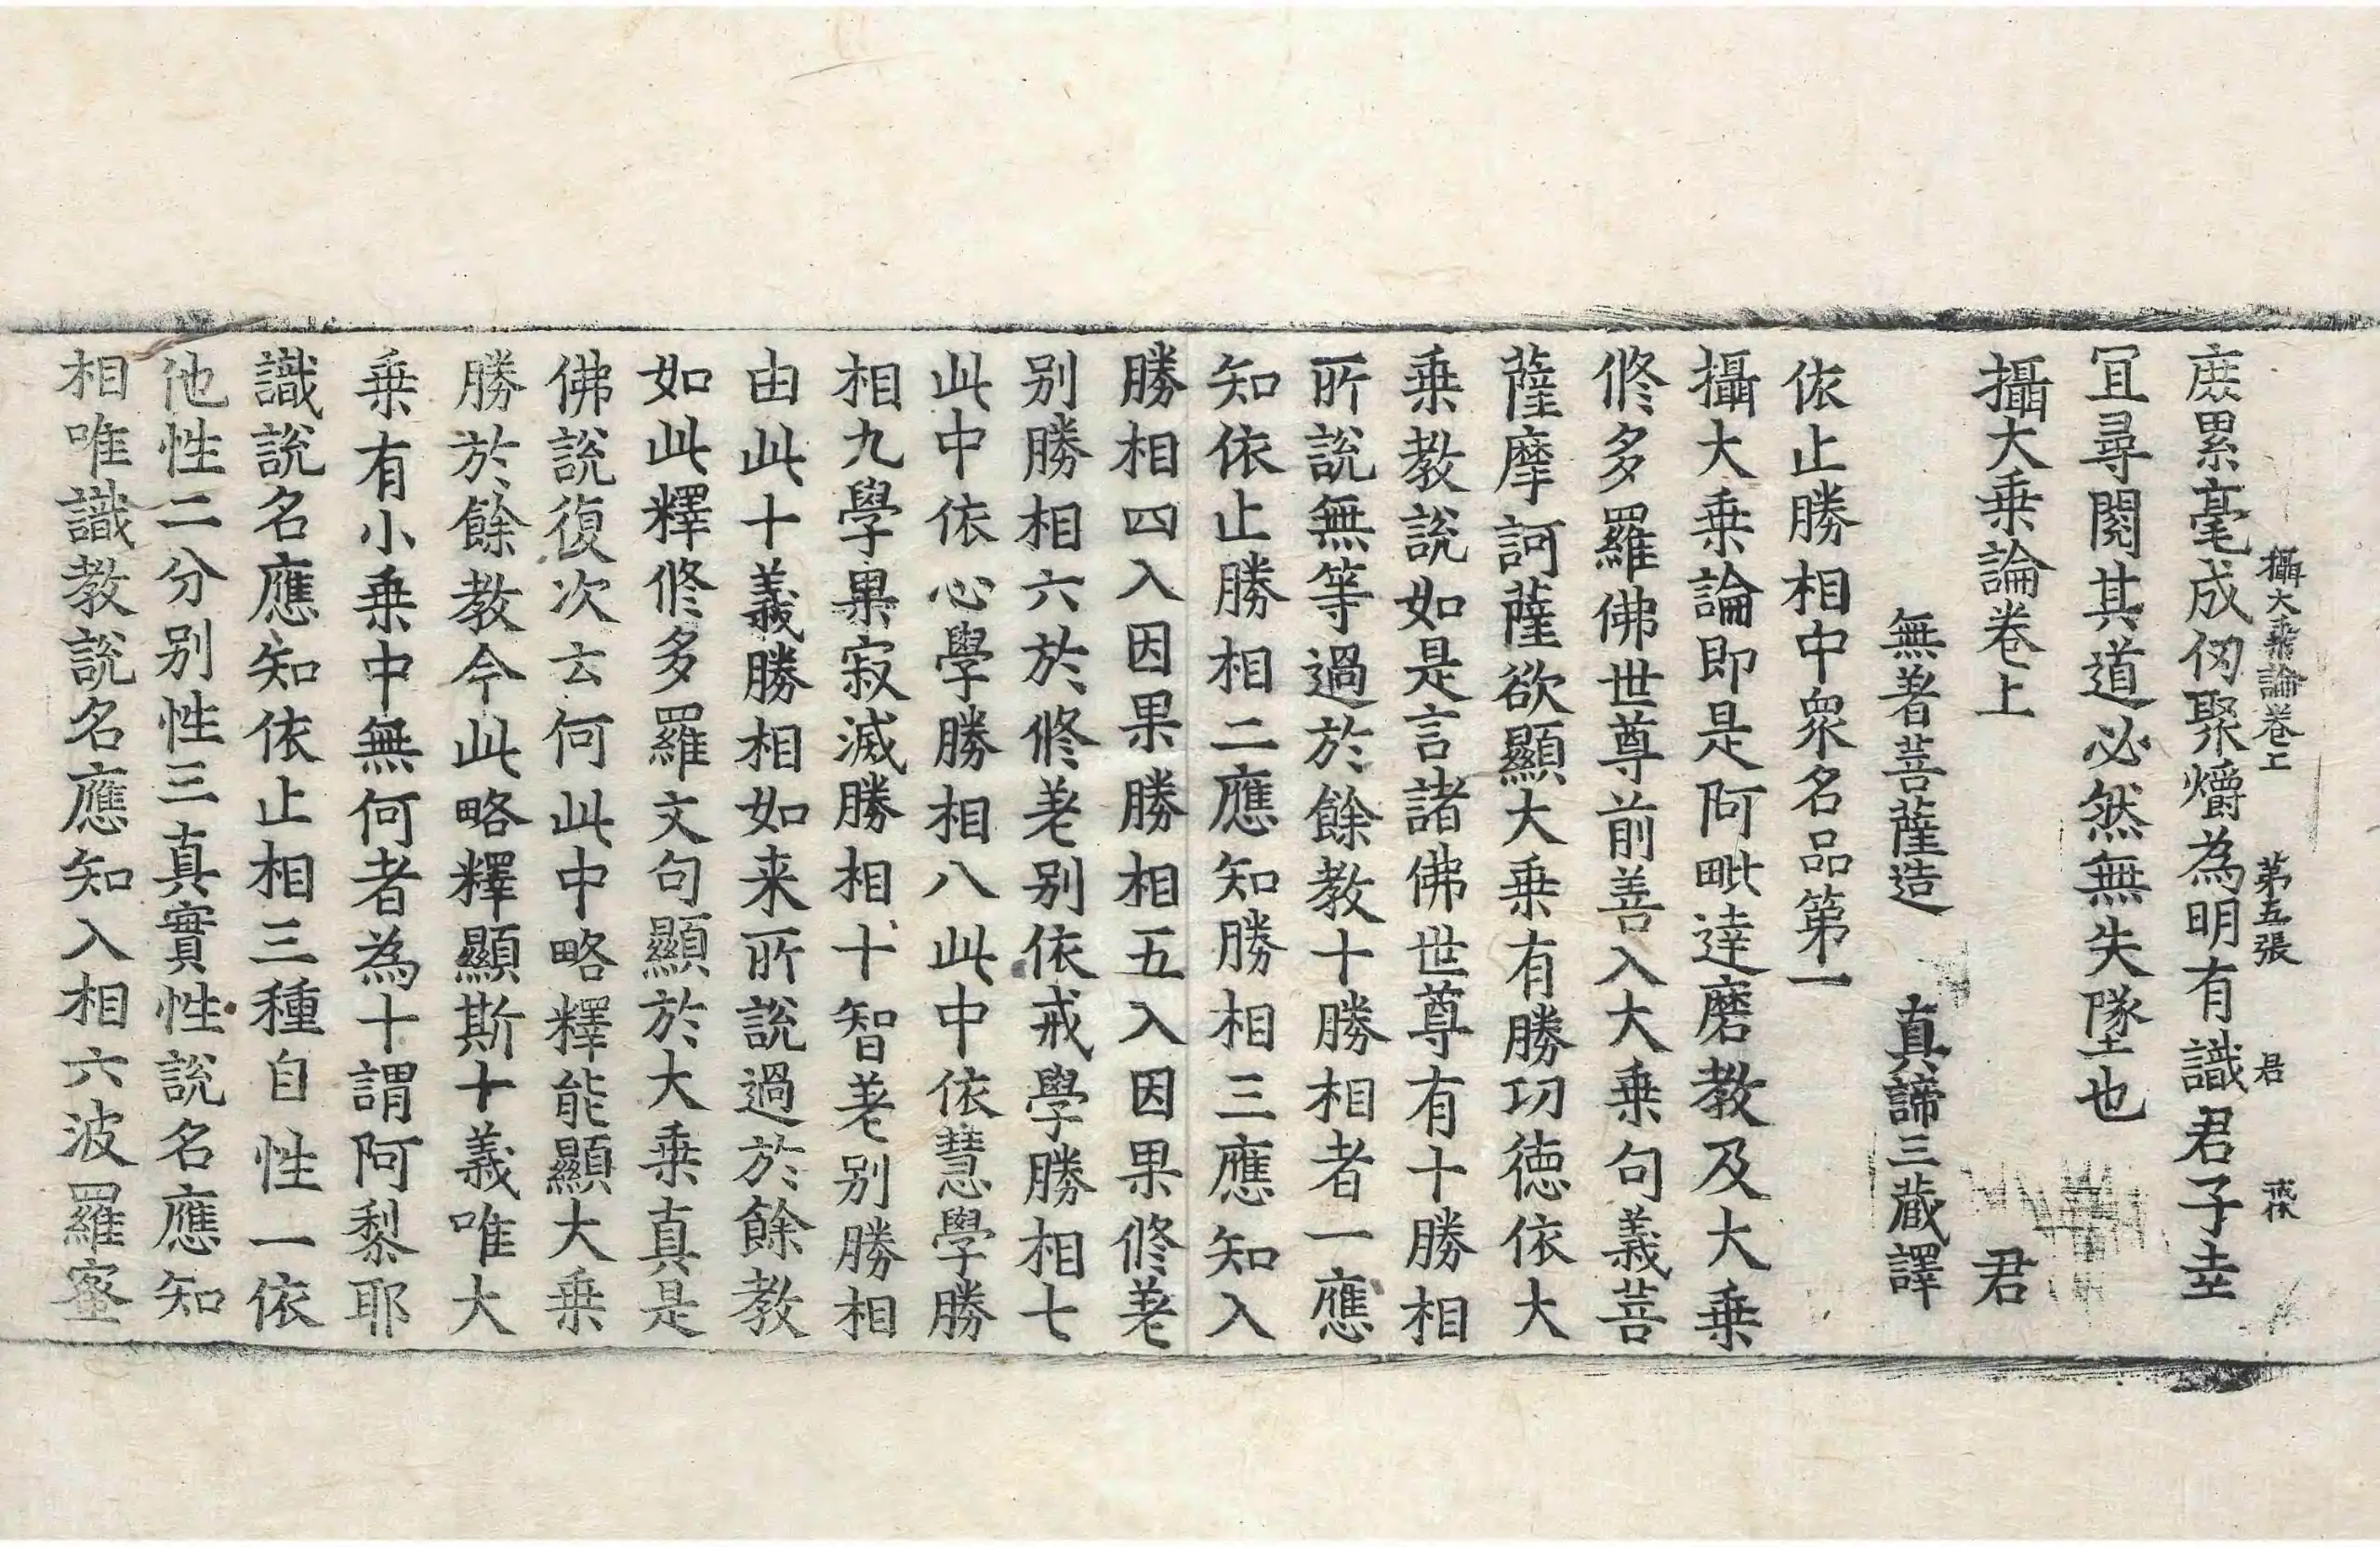 攝大乘論卷上 第五張 君
庶累毫成仭聚爝為明有識君子幸
冝尋閱其道必然無失墜也
攝大乘論卷上 君
無著菩薩造 真諦三藏譯
依止勝相中衆名品第一
攝大乘論即是阿毗達磨教及大乘
修多羅佛世尊前善入大乘句義菩
薩摩訶薩欲顯大乘有勝功德依大
乘教說如是言諸佛世尊有十勝相
所說無等過於餘教十勝相者一應
知依止勝相二應知勝相三應知入
勝相四入因果勝相五入因果修差
別勝相六於修差別依戒學勝相七
此中依心學勝相八此中依慧學勝
相九學果寂滅勝相十智差別勝相
由此十義勝相如来所說過於餘教
如此釋修多羅文句顯於大乘真是
佛說復次云何此中略釋能顯大乘
勝於餘教今此略釋顯斯十義唯大
乘有小乘中無何者為十謂阿黎耶
識說名應知依止相三種自性一依
他性二分別性三真實性說名應知
相唯識教說名應知入相六波羅蜜